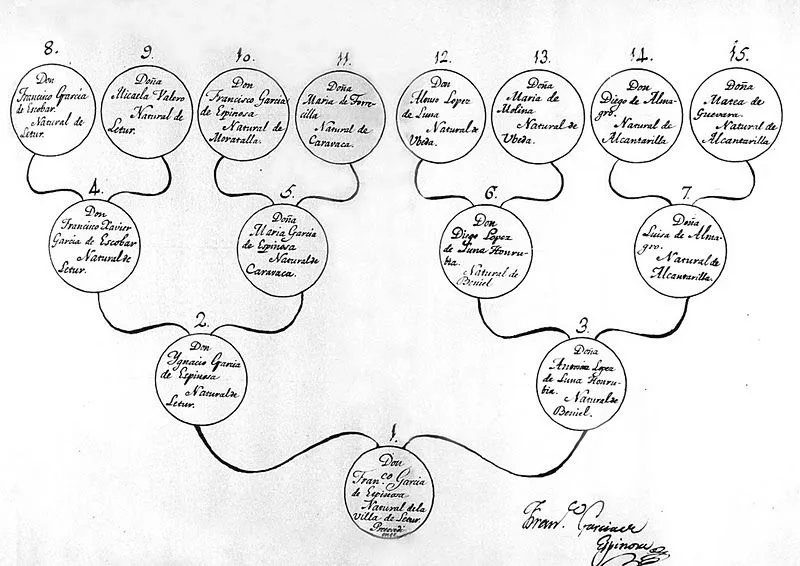 8.
Don
Francisco Garcia
de Escobar.
Natural de
Letur.
9.
Doña
Micaela Valero
Natural de
Letur.
10.
Don
Francisco Garcia
de Espinosa
Natural de
Moratalla.
11.
Doña
Maria de Torre-
cilla
Natural de
Caravaca.
12.
Don
Alonso Lopez
de Luna
Natural de
Vbeda.
13.
Doña
Maria de
Molina
Natural de
Vbeda.
14.
Don
Diego de Alma-
gro.
Natural de
Alcantarilla
15.
Doña
de
Guevara.
Natural de
Alcantarilla
4.
Don
Francisco Xavier
Garcia de Escobar
Natural de
Letur.
5.
Doña
Maria Garcia
de Espinosa
Natural de
Caravaca.
6.
Don
Diego Lopez
de Luna Honru-
bia.
Natural de
Beniel
7.
Doña
Luisa de Alma-
gro.
Natural de
Alcantarilla.
2.
Don
Ygnacio Garcia
de Espinosa
Natural de
Letur.
3.
Doña
Antonia Lopez
de Luna Honru-
bia.
Natural de
Beniel.
1.
Don
Fran.co Garcia
de Espinosa
Natural de la
Villa de Letur.
Fran.co Garcia de
Espinosa